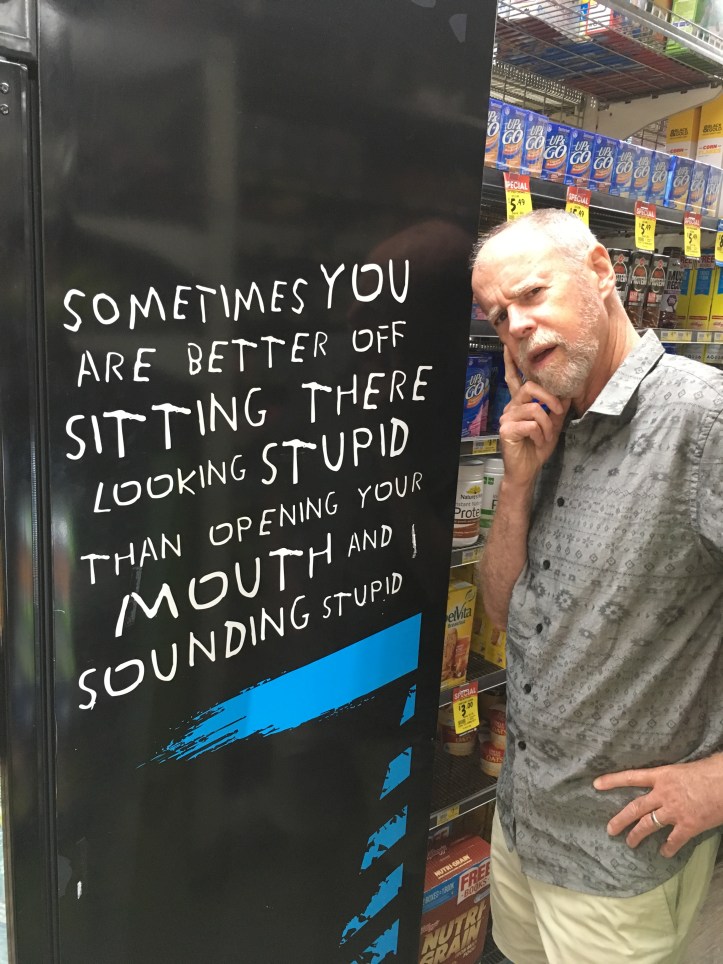 SOMETIMES YOU
ARE BETTER OFF
SITTING THERE
LOOKING STUPID
THAN OPENING YOUR
MOUTH AND
SOUNDING STUPID
UP& GO
UP& GO
UP& GO
UP& GO
UP& GO
UP& GO
SPECIAL
5.49
SPECIAL
SPECIAL
SPECIAL
UP& GO
Prote
elVita
SPECIAL
3.00
NUTRI-GRAIN
FREE
NUTRI
GRAIN